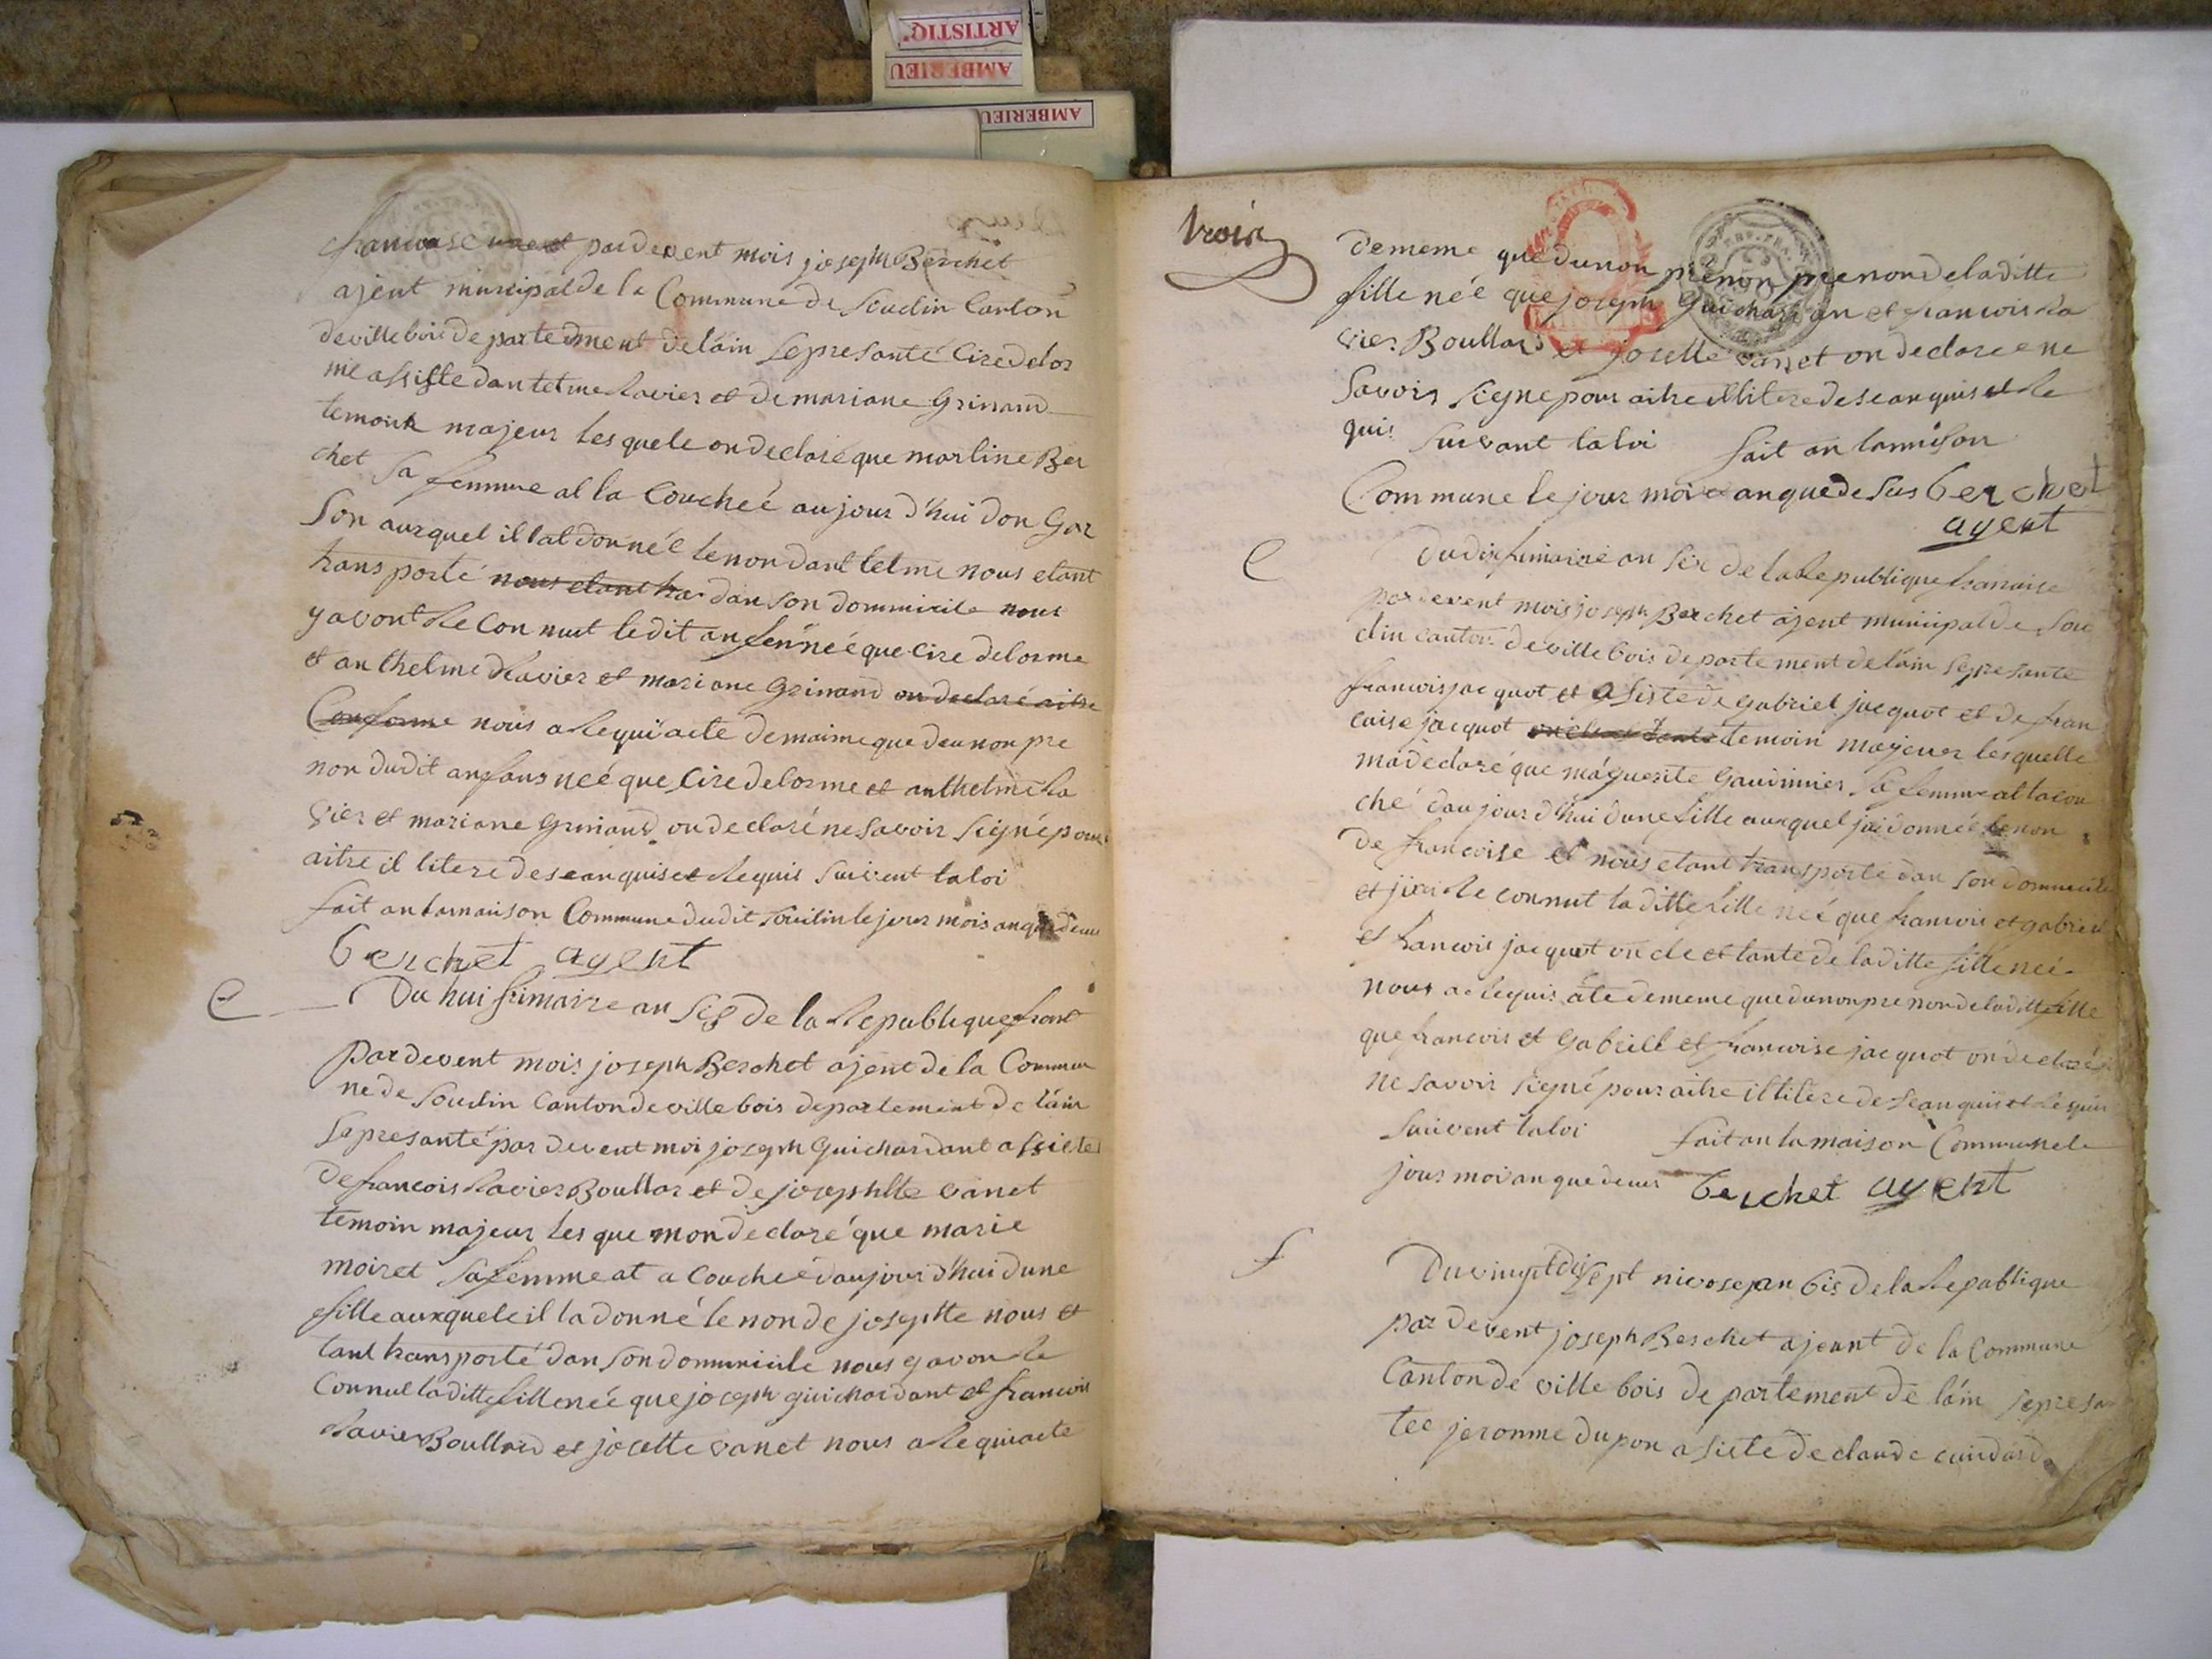 ARTISTIQ'
AMBERIEU
AMBERIEU
francaise par devent mois joseph Berchet
ajent municipal de la Commune de Soudin Canton
de villebois departedment de lain Sepresanté Cire delor
me assiste dantelme Ravier et de mariane Grinand
temoin majeur les quele on declaré que marline Ber
chet sa femme al la Coucheé aujour d'hui don Gar
son auxquel il lal donnéé le non dant telme nous etant
transporté nous etant tra dan son dommicile nous
y avont Reconnut ledit anfen neé que Cire delorme
et anthelme Ravier et mariane Grinand on declaré aitre
Conforme nous a Requi acte de maime que deu non pre
non dudit anfans neé que Cire delorme et anthelme Ra
vier et mariane Grinand on declaré ne savoir signé pour
aitre il litere de se anquis et Requis suivent la loi
fait an la maison Commune dudit Soudin le jour mois an que deu
berchet agent
e
Du hui frimaire an sis de la Republique franc
par devent mois joseph Berchet ajent de la Commu
ne de Soudin Canton de ville bois departement de lain
Sepresanté par devent moi joseph Guichardant assiste
de francois Ravier Boullar et de josephtte vanet
temoin majeur les que mon declaré que marie
moiret sa femme at a Couchéé daujour d'hui dune
fille auxquele il la donné le non de josephtte nous et
tant transporté dan son dommicile nous y avon Re
Connut la ditte fille neé que joseph guichardant et francois
Ravier Boullard et josette vanet nous a Requi acte
trois
de meme que du non prenon prenon de la ditte
fille neé que joseph Guichardan et francois Ra
vier Boullard et josette vanet on declaré ne
savoir signe pour aitre illitere de se anquis et Re
quis suivant la loi fait an lamison
Commune le jour moi et an que de sus berchet
agent
e
Du dix frimaire an six de la Republique franaise
par devent mois joseph Berchet ajent municipal de Sou
din canton de ville bois departement de lain Sepresante
francois jacquot et asisté de Gabriel jacquot et de fran
caise jacquot oncle et tante temoin majeur les quelle
ma declaré que maguerite Gaudinnier sa femme at lacou
ché daujour d'hui dune fille auxquel jai donnéé le non
de francoise et nous etant transporte dan son dommicile
et jiai Reconnut la ditte fille neé que francois et gabriel
et francois jacquot oncle et tante de la ditte fille neé
nous a Requis ate de meme que du non prenon de la ditte fille
que francois et Gabriell et francoise jacquot on declaré
ne savoir signé pour aitre illitere de se anquis et Requis
suivent la loi fait an la maison Commune le
jour moi an que deus berchet agent
f
Du vingt dis sept nivose jan 6is de la Republique
par devent joseph Berchet ajeant de la Commune
Canton de ville bois departement de lain sepresan
tee jeromme dupon a siste de claude cuindard